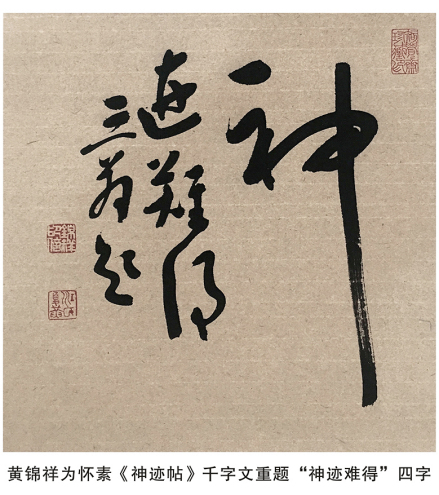 神
迹難得
黄锦祥为怀素《神迹帖》千字文重题“神迹难得”四字